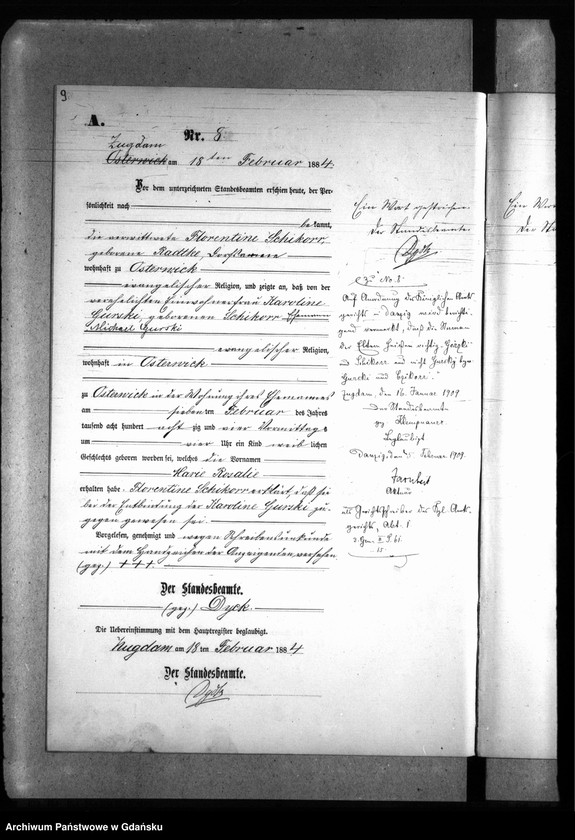 9
A.
Nr. 8
Zugdam
Osterwick am 18 ten Februar 1884.
Vor dem unterzeichneten Standesbeamten erschien heute, der Per-
sönlichkeit nach
bekannt,
die verwittwete Florentine Schikorr,
geborene Radtke,
wohnhaft zu Osterwick
evangelischer Religion, und zeigte an, daß von der
verehelichten Einwohnerfrau Karoline
Gurski, geborenen Schikorr Ehemann
Michael Gurski
evangelischer Religion,
wohnhaft in Osterwick
zu Osterwick in der Wohnung ihres Ehemannes
am sieben ten Februar des Jahres
tausend acht hundert acht zig und vier Vormittags
um vier Uhr ein Kind weib lichen
Geschlechts geboren worden sei, welches die Vornamen
Marie Rosalie
erhalten habe. Florentine Schikorr erklärt, daß sie
bei der Entbindung der Karoline Gurski zu-
gegen gewesen sei.
Vorgelesen, genehmigt und wegen Schreibensunkunde
mit dem Handzeichen der Anzeigenden versehen
(gez.) + + +
Der Standesbeamte.
(gez.) Dyck.
Die Uebereinstimmung mit dem Hauptregister beglaubigt.
Zugdam am 18 ten Februar 1884
Der Standesbeamte.
Dyck
Ein Wort gestrichen
Der Standesbeamte
Dyck
Zu No. 8.
Auf Anordnung des Königlichen Amts
gerichts Danzig wird berichti-
gend vermerkt, daß die Namen
der Eltern richtig
und und nicht Gurski bzw.
und
Zugdam, den 16. Januar 1909
Der Standesbeamte
gez
Beglaubigt
Danzig, den 5. Februar 1909.
Aktuar
als Gerichtsschreiber des Kgl. Amts-
gerichts, Abt. 1.
Ein Wor
Der St
Archiwum Państwowe w Gdańsku